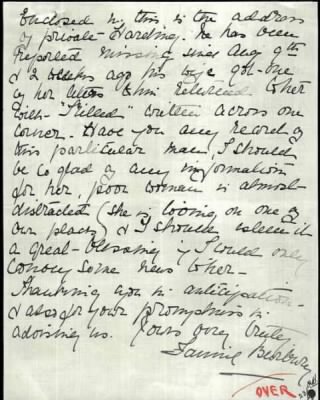 Enclosed in this is the address
of private Harding. he has been
reported missing since Aug 9th
& 2 weeks ago his wife got one
of her letters to him returned to her
with "Killed" written across one
corner. Have you any record of
this particular man, I should
be so glad of any information
for her, poor woman is almost
distracted (she is living on one of
our places) & I should esteem it
a great blessing if I could only
convey some news to her.
Thanking you in anticipation
& also for your promptness in
advising us. Yours very truly
OVER